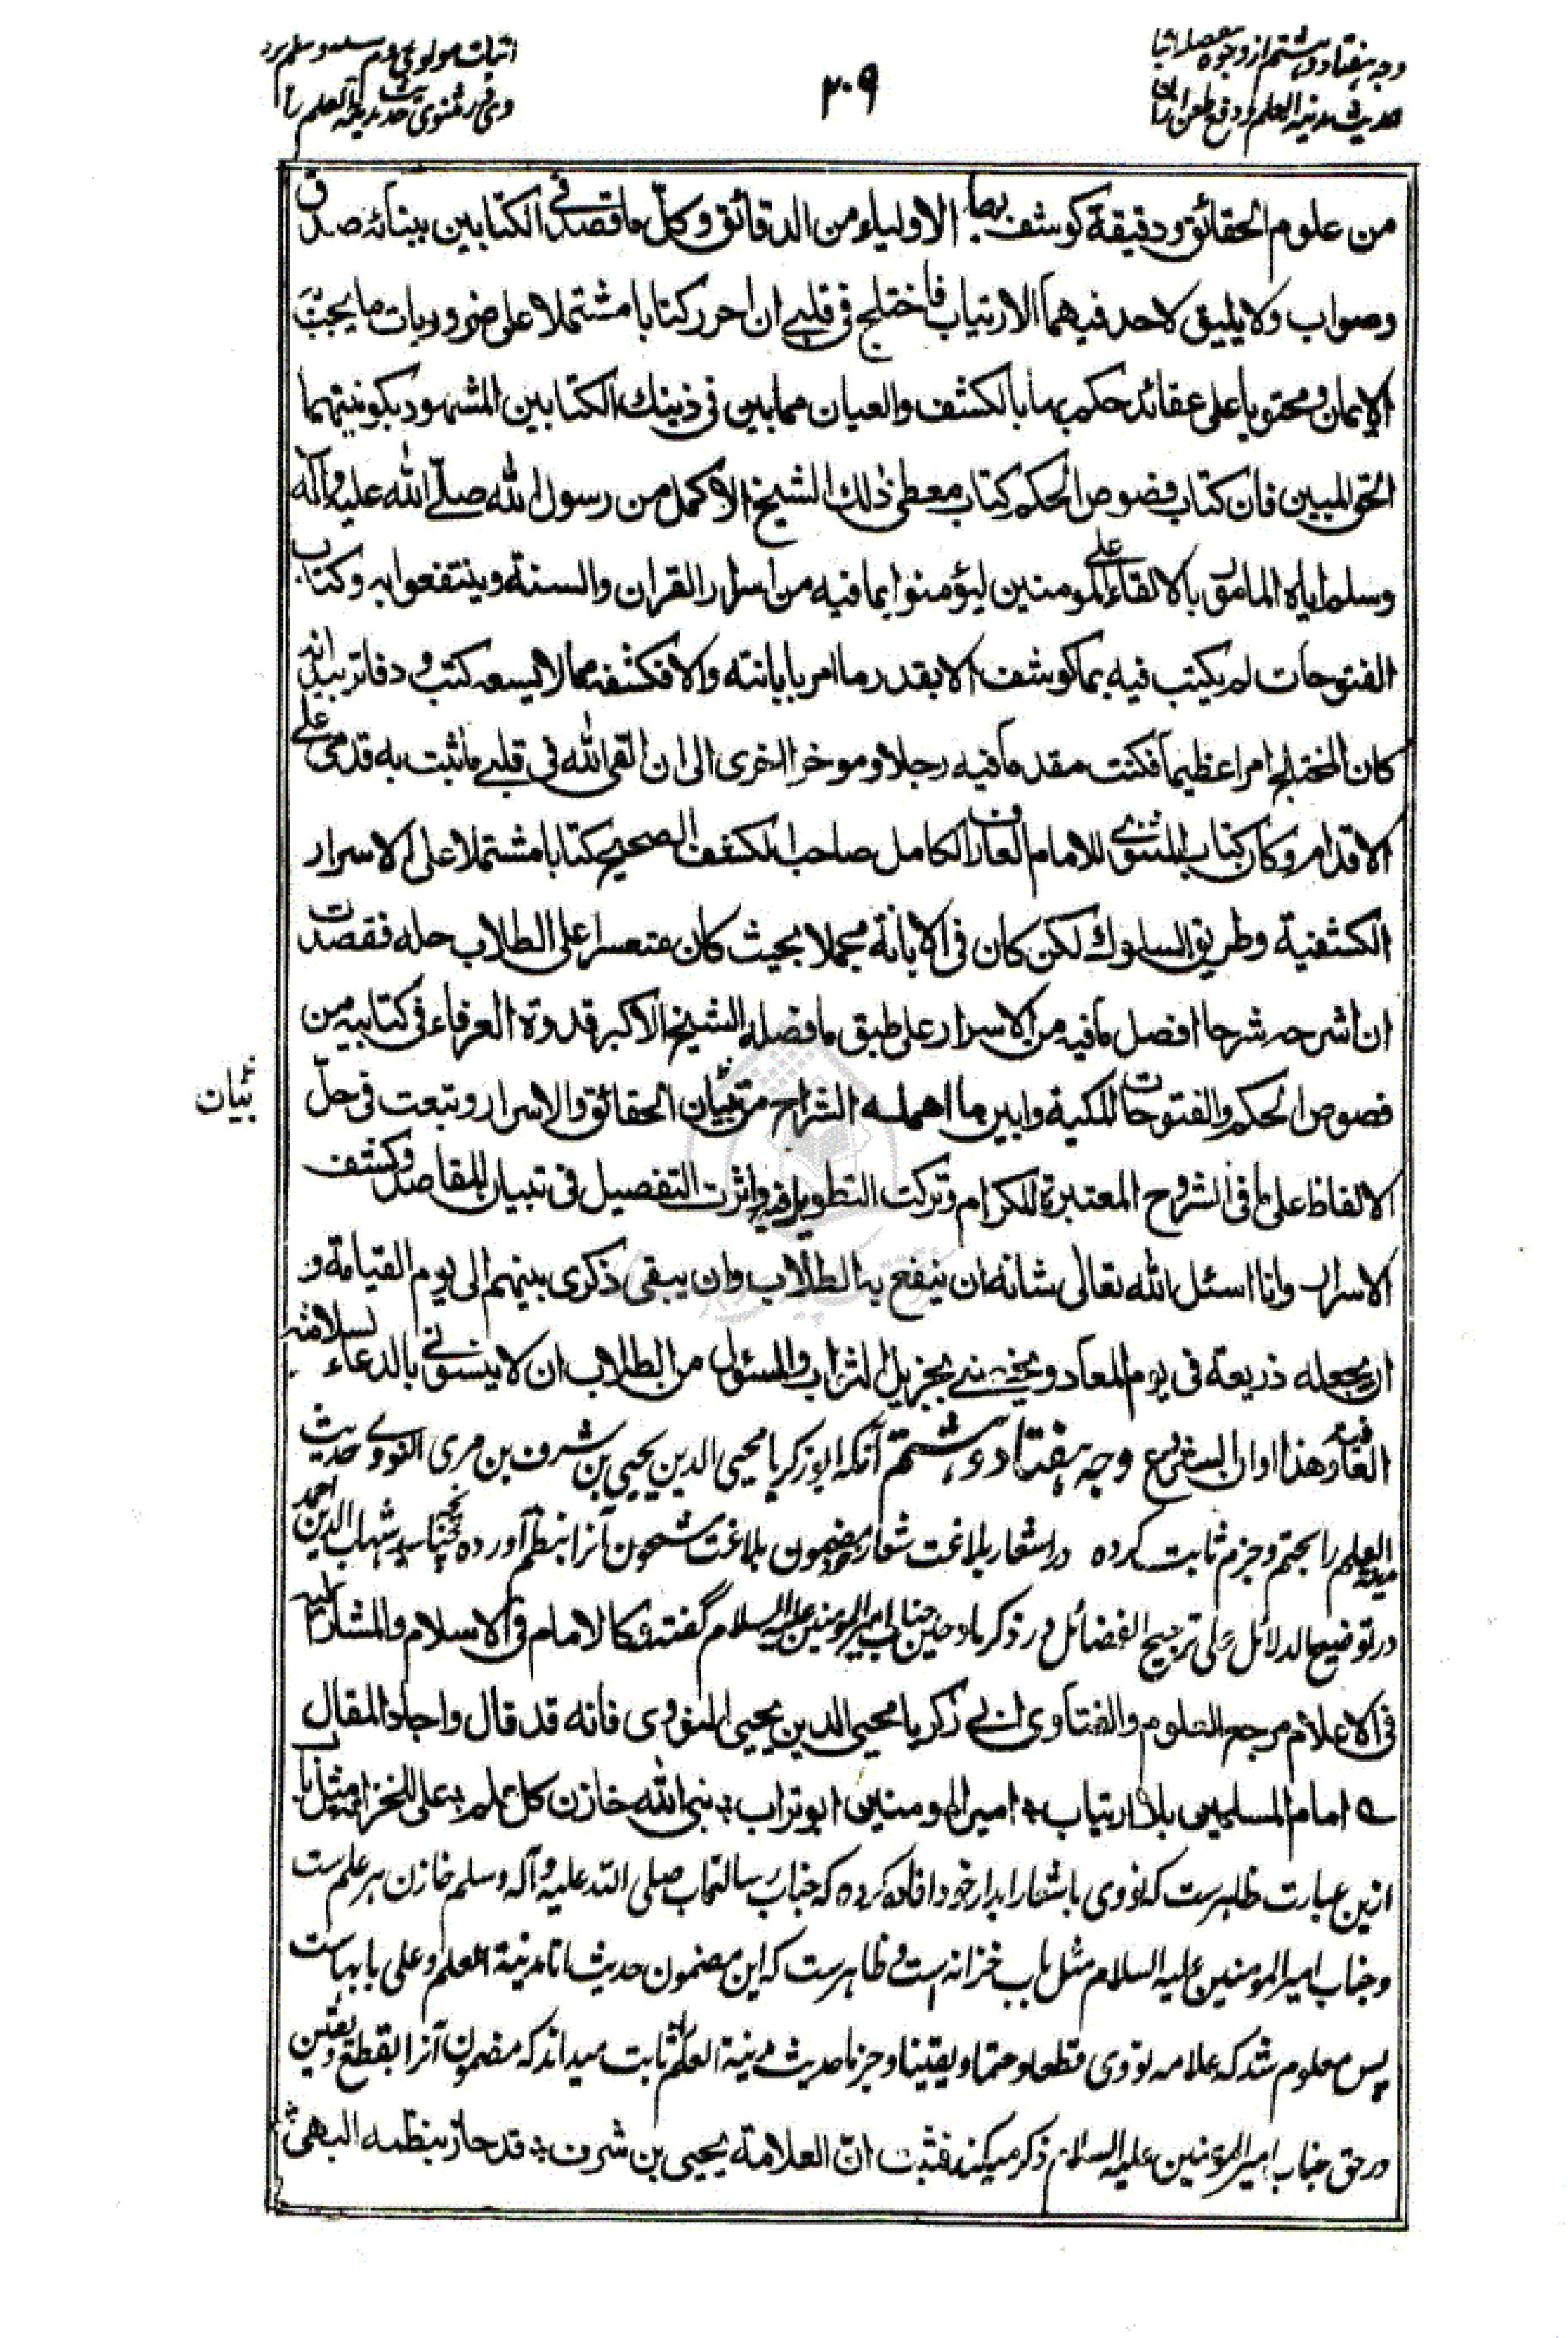 وجه هفتاد و هشتم از وجوه مفصله اثبات
حدیث مدینة العلم و دفع طعن
۲۰۹
اثبات مولوی
وی در مثنوی حدیث مدینة العلم را
من علوم الحقائق ودقيقة كوشف بها الاولياء من الدقائق وكلّ ما قصد فی الكتابين ببيانه صدق
وصواب ولا يليق لاحد فيهما الارتياب فاختلج فی قلبے ان احرر كتابا مشتملا علی ضروريات ما يجب به
الايمان ومحتويا علی عقائد حكم بها بالكشف والعيان مما بين فی ذينك الكتابين المشهود بكونيتهما
الحق المبين فان كتاب فصوص الحكم كتاب معطی ذلك الشيخ الاكمل من رسول الله صلّے الله عليه وآله
وسلم اياه المامور بالالقاء علی المومنين ليؤمنوا بما فيه من اسرار القران والسنة وينتفعوا به وكتاب
الفتوحات لم يكتب فيه بما كوشف الا بقدر ما امر بابانته والا فكشفه مما لا يسعه كتب و دفاتر بيد انه
كان المختلج امرا عظيما فكنت مقدما فيه رجلا وموخرا اخری الی ان القی الله فی قلبے ما ثبت به قدمی علے
الاقدام وكان كتاب المثنوی للامام العارف الكامل صاحب الكشف الصحيح كتابا مشتملا علی الاسرار
الكشفية وطريق السلوك لكن كان فی الابانة مجملا بحيث كان متعسرا علی الطلاب حله فقصدت
ان اشرحه شرحا افصل ما فيه من الاسرار علی طبق ما فصله الشيخ الاكبر قدوة العرفاء فی كتابيه من
فصوص الحكم والفتوحات المكية وابين ما اهمله الشراح من تبيان الحقائق والاسرار وتبعت فی حلّ
تبيان
الالفاظ علی ما فی الشروح المعتبرة للكرام وتركت التطويل فيه واثرت التفصيل فی تبيان المقاصد وكشف
الاسرار وانا اسئل الله تعالی شانه ان ينفع به الطلّاب وان يبقی ذكری بينهم الی يوم القيامة و
ان يجعله ذريعة فی يوم المعاد ويخصنے بجزيل الثواب والمسئول من الطلاب ان لا ينسونے بالدعاء لسلامة
العاقبة وهذا اوان الشروع وجه هفتاد و هشتم آنکه ابو زکریا محیی الدین یحیی بن شرف بن مری النووی حدیث
مدینة العلم را بحتم و جزم ثابت کرده در اشعار بلاغت شعار مضمون بلاغت مشحون آنرا بنظم آورده چنانچه سید شهاب الدین احمد
در توضیح الدلائل علی ترجیح الفضائل در ذکر مادحین جناب امیر المومنین علیه السلام گفته كالامام فی الاسلام والمشار اليه
فی الاعلام مرجع العلوم والفتاوی ابی زكريا محيی الدين يحيی النووی فانه قد قال واجاد المقال
امام المسلمين بلا ارتياب ؞ امير المومنين ابو تراب ؞ نبی الله خازن كل علم ؞ علی للخزانة مثل باب
ازین عبارت ظاهرست که نووی باشعار ابدار خود افاده کرده که جناب رسالتماب صلی الله علیه وآله وسلم خازن هر علم ست
و جناب امیر المومنین علیه السلام مثل باب خزانه است و ظاهرست که این مضمون حدیث انا مدینة العلم وعلی بابها ست
پس معلوم شد که علامه نووی قطعا و حتما و یقینا و جزما حدیث مدینة العلم را ثابت میداند که مضمون آنرا بقطع و یقین
در حق جناب امیر المؤمنین علیه السلام ذکر میکند فثبت انّ العلامة يحيی بن شرف ؞ قد حاز بنظمه البهی